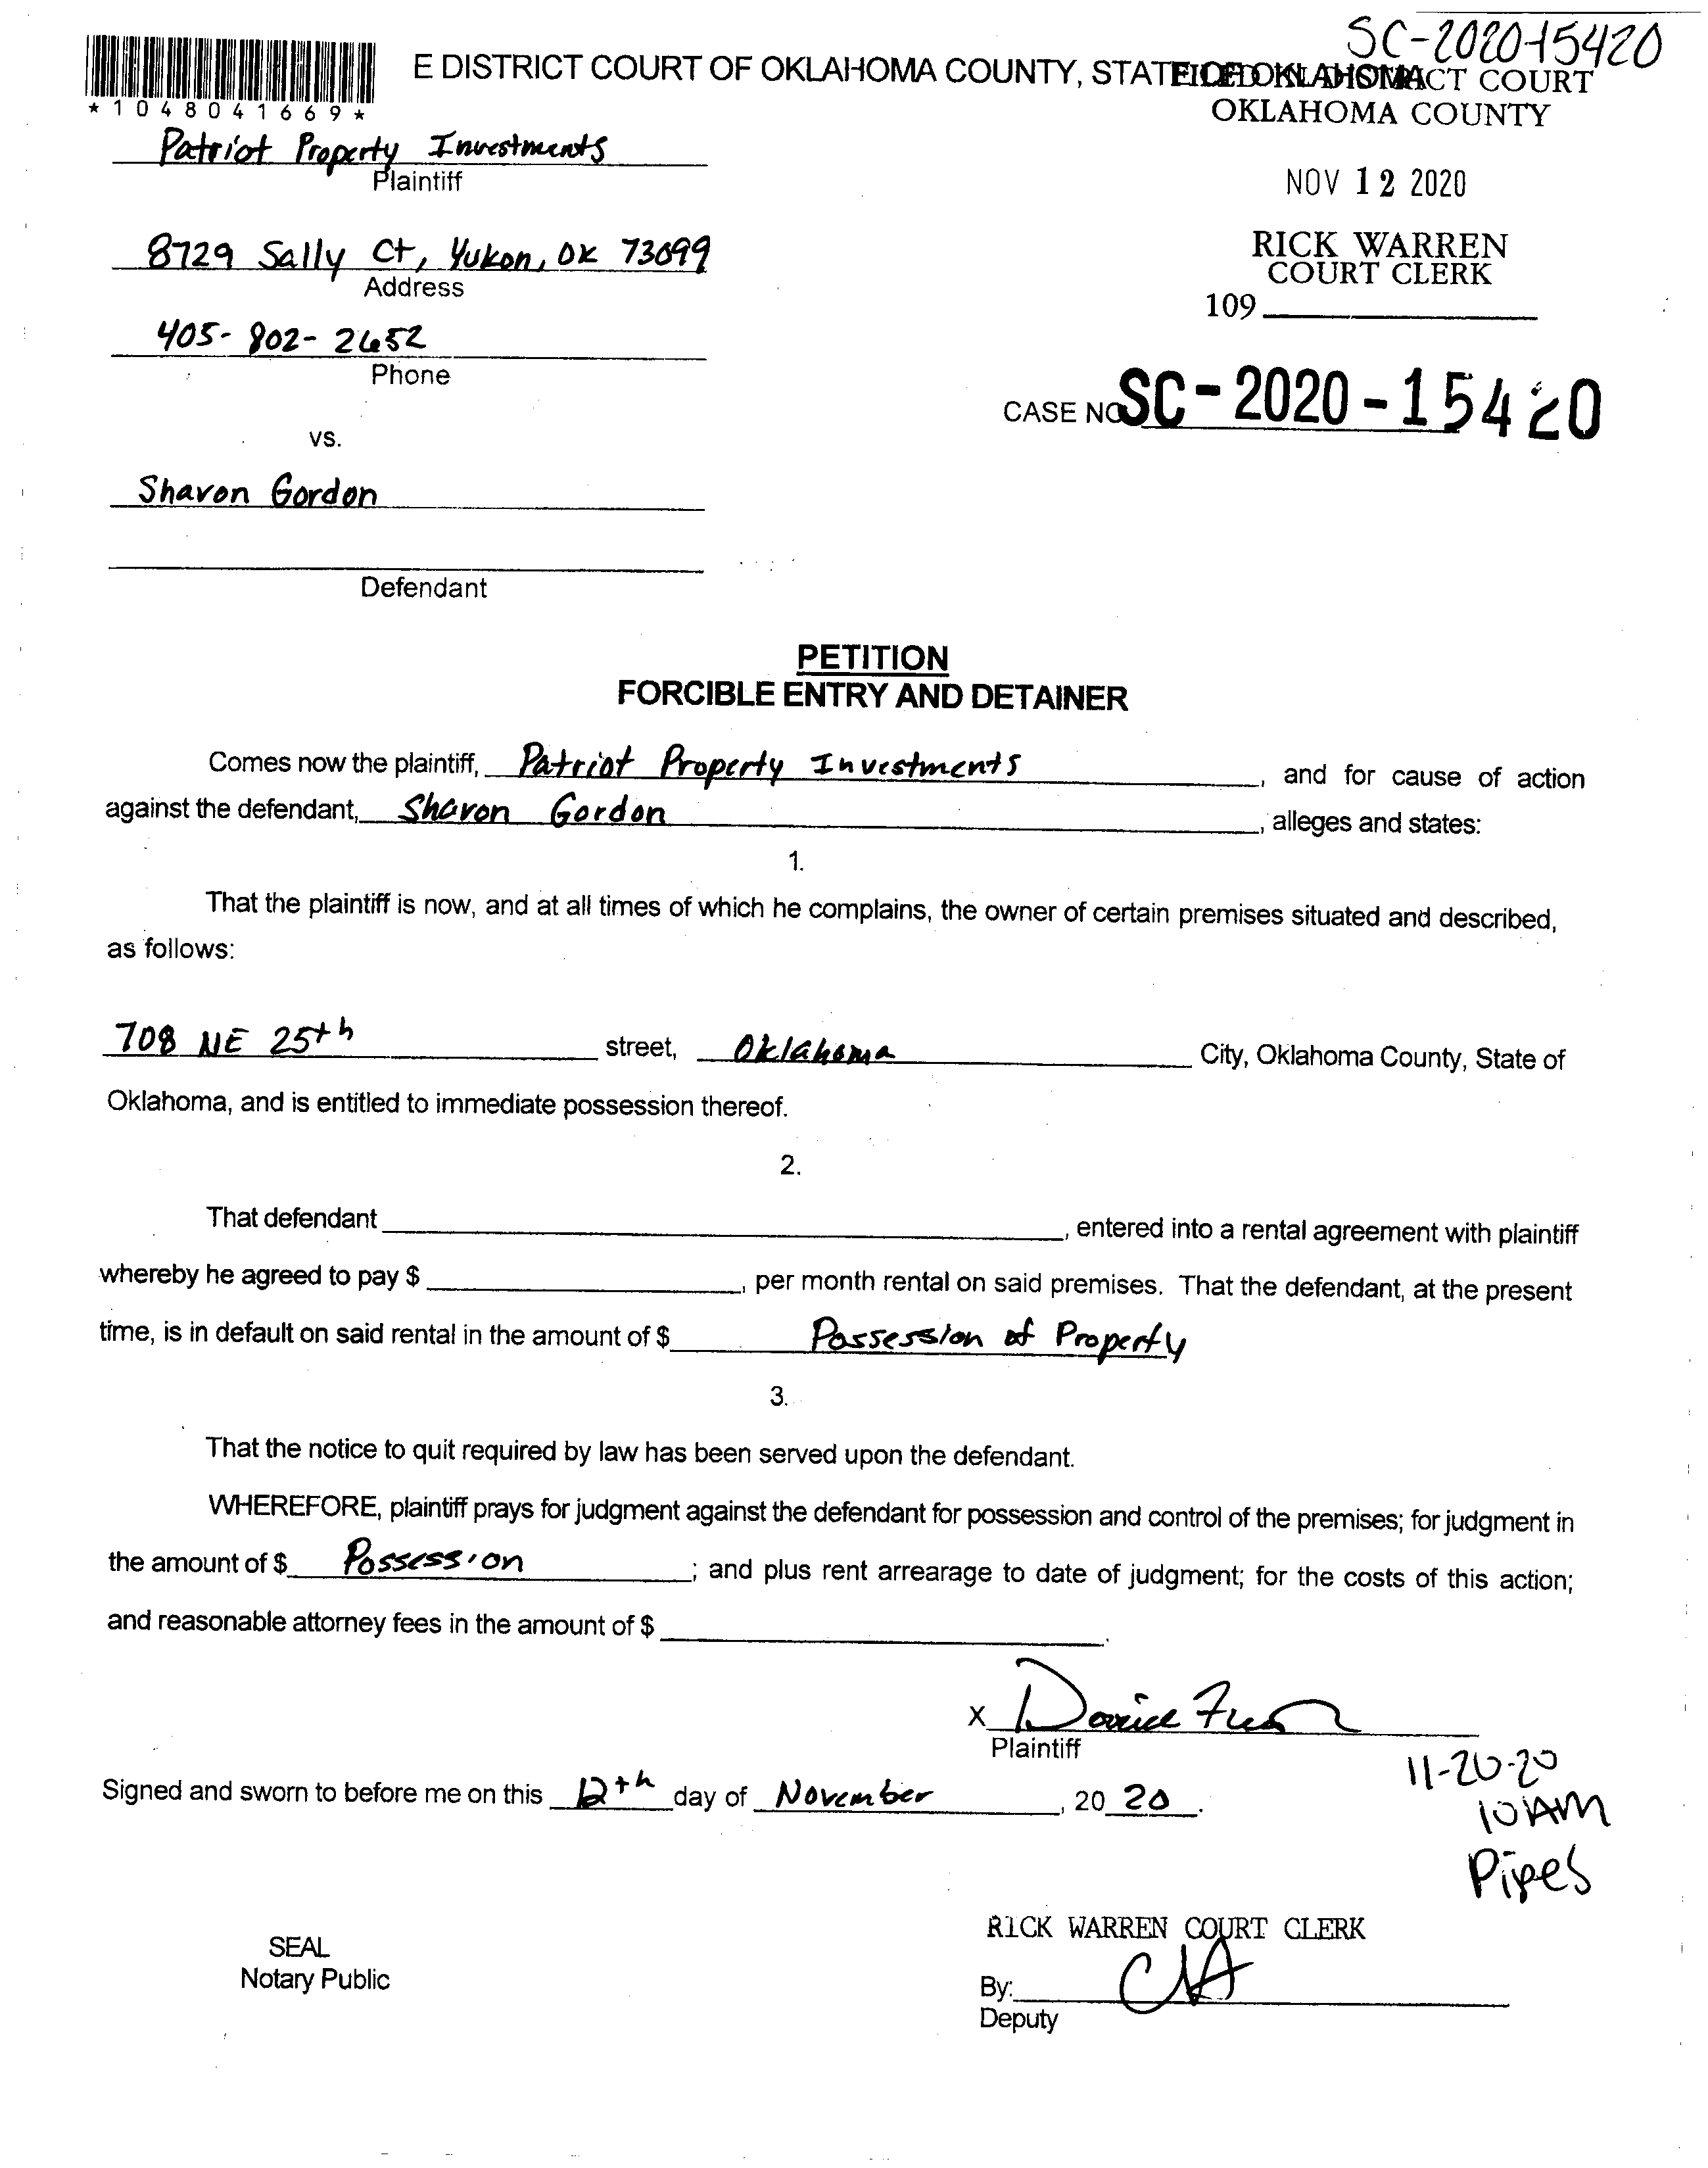 SC-2020-15420
E DISTRICT COURT OF OKLAHOMA COUNTY, STATE OF OKLAHOMA
FILED IN DISTRICT COURT
OKLAHOMA COUNTY
*1048041669*
Patriot Property Investments
Plaintiff
NOV 12 2020
8729 Sally Ct, Yukon, OK 73099
Address
RICK WARREN
COURT CLERK
109
405-802-2652
Phone
CASE NO SC-2020-15420
vs.
Sharon Gordon
Defendant
PETITION
FORCIBLE ENTRY AND DETAINER
Comes now the plaintiff, Patriot Property Investments, and for cause of action
against the defendant, Sharon Gordon, alleges and states:
1.
That the plaintiff is now, and at all times of which he complains, the owner of certain premises situated and described,
as follows:
708 NE 25th street, Oklahoma City, Oklahoma County, State of
Oklahoma, and is entitled to immediate possession thereof.
2.
That defendant , entered into a rental agreement with plaintiff
whereby he agreed to pay $ , per month rental on said premises. That the defendant, at the present
time, is in default on said rental in the amount of $ Possession of Property
3.
That the notice to quit required by law has been served upon the defendant.
WHEREFORE, plaintiff prays for judgment against the defendant for possession and control of the premises; for judgment in
the amount of $ Possession ; and plus rent arrearage to date of judgment; for the costs of this action;
and reasonable attorney fees in the amount of $ .
X
Plaintiff
Signed and sworn to before me on this 12th day of November, 20 20.
11-20-20
10AM
Pipes
RICK WARREN COURT CLERK
SEAL
Notary Public
By:
Deputy